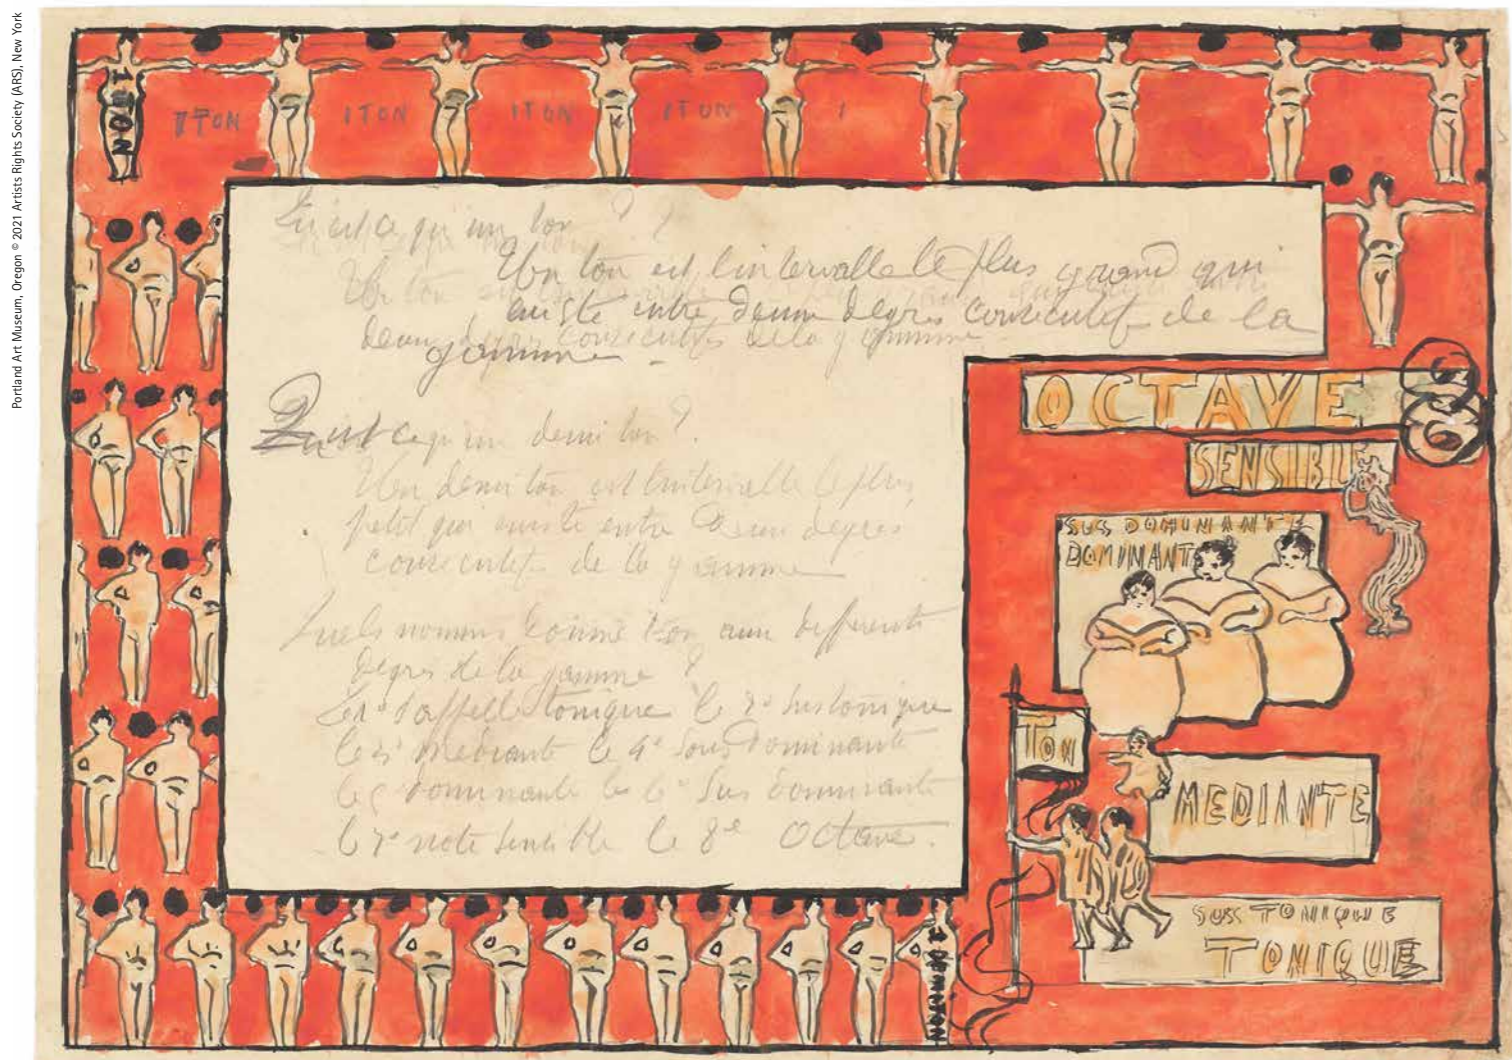 Portland Art Museum, Oregon © 2021 Artists Rights Society (ARS), New York
1 TON
1 TON 1 TON 1 TON 1 TON 1
Qu'est ce qu'un ton ?
Un ton est l'intervalle le plus grand qui
existe entre deux degrés consecutifs de la
deux degrés consecutifs de la gamme
gamme
Qu'est ce qu'un demi ton ?
Un demi ton est l'intervalle le plus
petit qui existe entre deux degrés
consecutifs de la gamme
Quels nomms donne t-on aux differents
degrés de la gamme ?
Le 1er s'appelle tonique le 2e sustonique
le 3e mediante le 4e Sous Dominante
le 5e dominante le 6e Sus Dominante
le 7e note sensible le 8e Octave.
OCTAVE
SENSIBLE
SUS DOMINANT
DOMINANT
TON
MEDIANTE
SUSS TONIQUE
TONIQUE
1 DEMITON